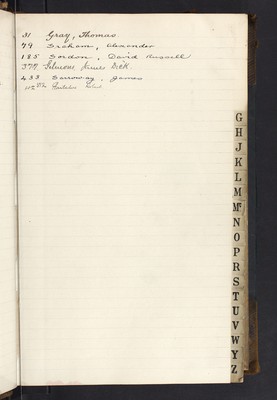 31 Gray, Thomas
79 Graham, Alexander
185 Gordon, David Russell
377 James Dick
433 Garroway, James
G
H
J
K
L
M
Mc
N
O
P
R
S
T
U
V
W
Y
Z